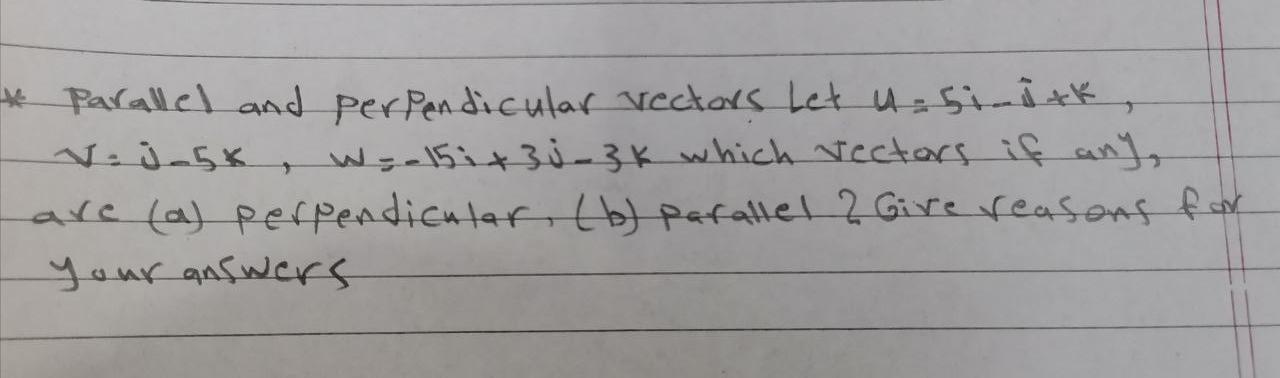 * Parallel and perpendicular vectors Let u = 5i - j + k,
v = j - 5k, w = -15i + 3j - 3k which vectors if any,
are (a) perpendicular, (b) parallel ? Give reasons for
your answers